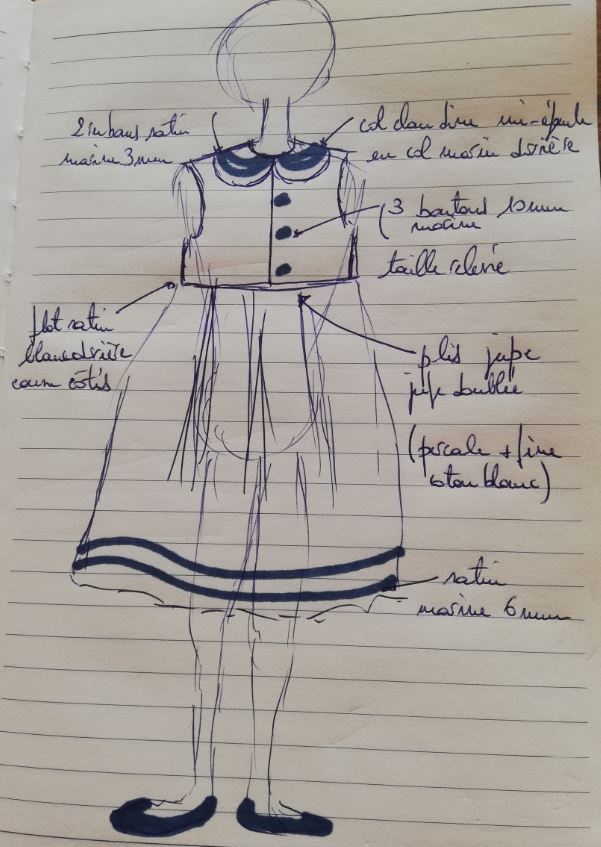 2 rubans satin
marine 3mm
col claudine mi-épaule
en col marin derrière
3 boutons 10mm
marine
taille relevée
flot satin
blanc derrière
cousu côtés
plis jupe
jupe doublée
(percale + fine
coton blanc)
satin
marine 6mm